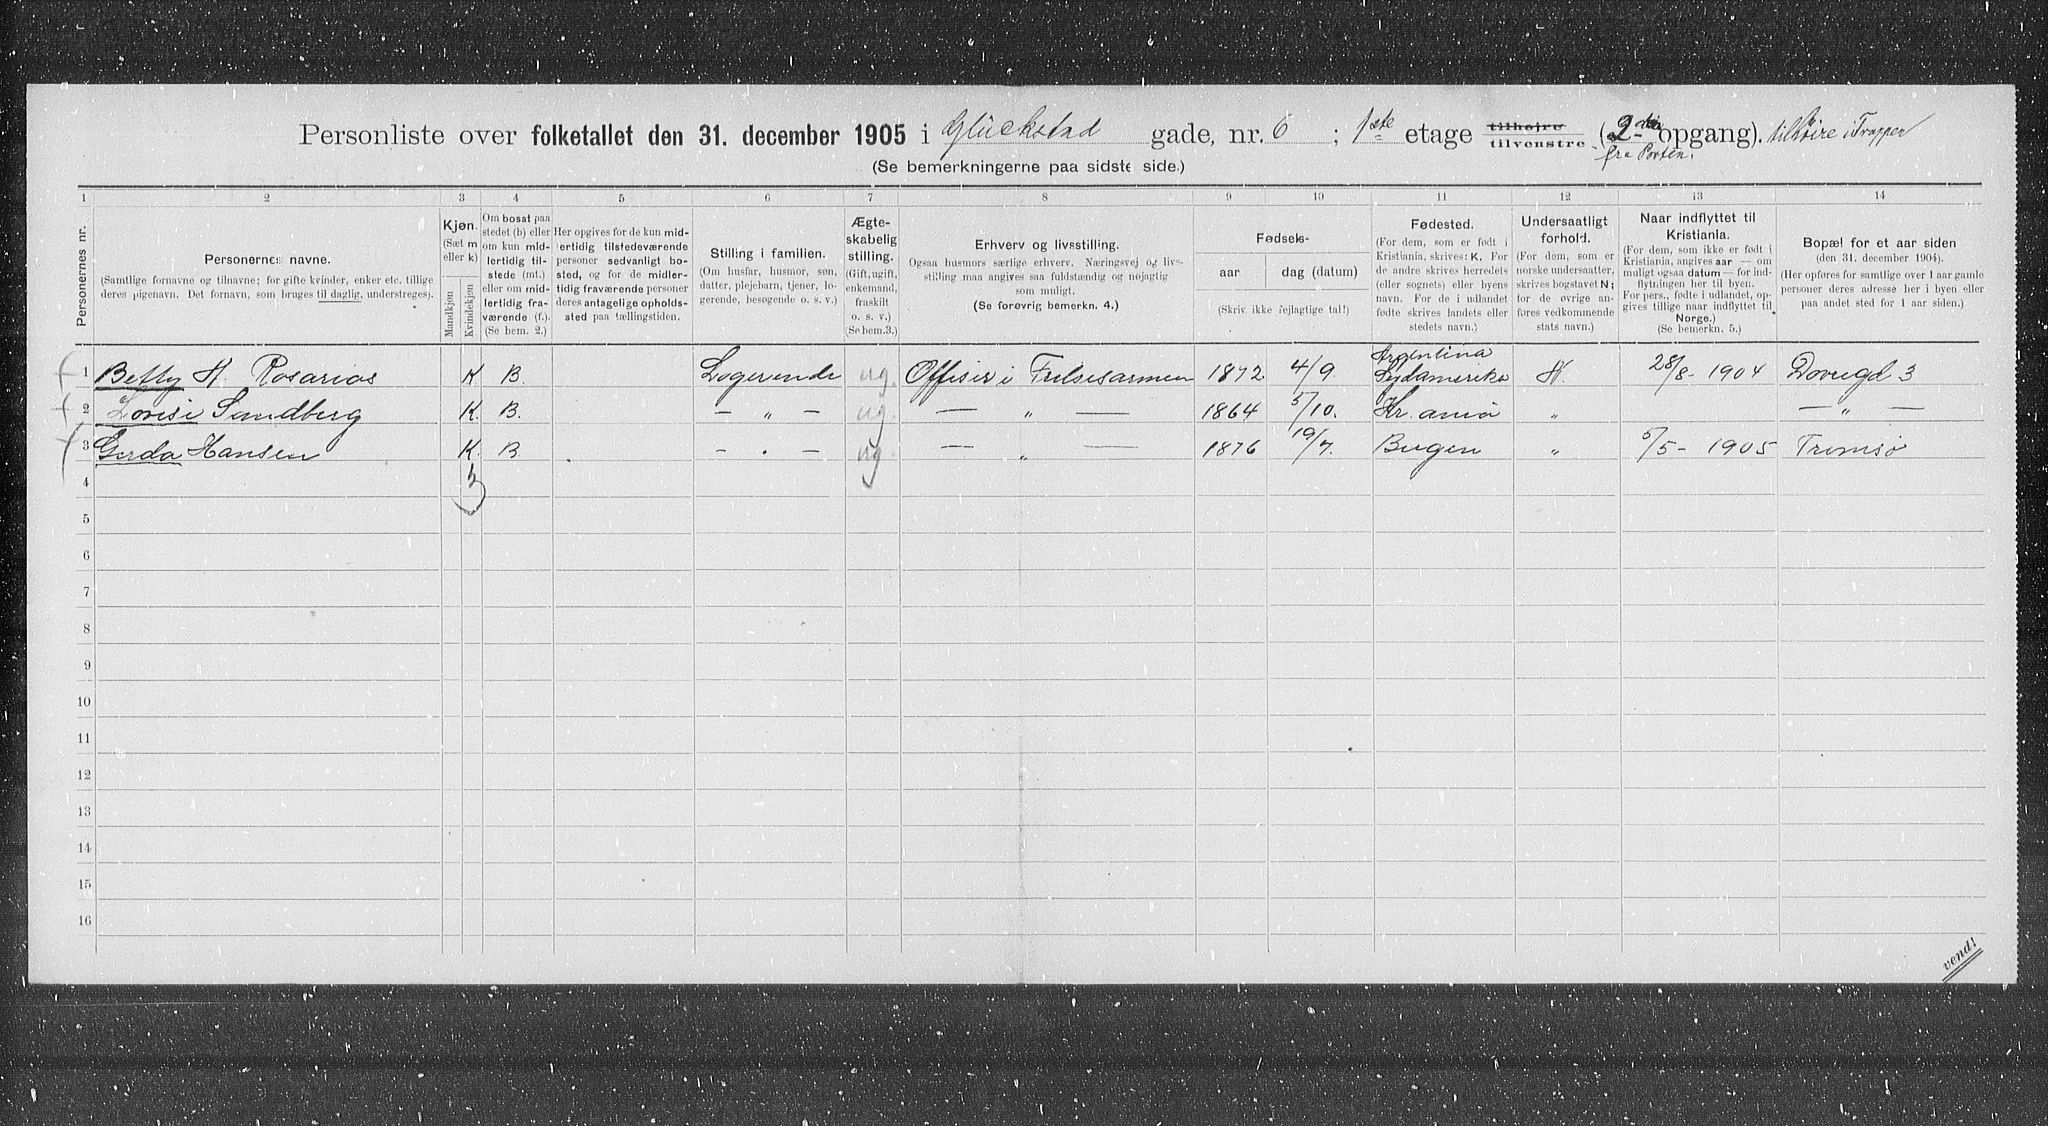 Personliste over folketallet den 31. december 1905 i Glückstad gade, nr. 6 ; 1ste etage tilhøjre tilvenstre (2-den opgang). tilhøire i Trappen
fra Porten.
(Se bemerkningerne paa sidste side.)
1 2 3 4 5 6 7 8 9 10 11 12 13 14
Personernes nr.
Personernes navne.
(Samtlige fornavne og tilnavne; for gifte kvinder, enker etc. tillige
deres pigenavn. Det fornavn, som bruges til daglig, understreges).
Kjøn.
(Sæt m
eller k)
Mandkjøn
Kvindekjøn
Om bosat paa
stedet (b) eller
om kun mid-
lertidig til-
stede (mt.)
eller om mid-
lertidig fra-
værende (f.).
(Se bem. 2.)
Her opgives for de kun mid-
lertidig tilstedeværende
personer sedvanligt bo-
sted, og for de midler-
tidig fraværende personer
deres antagelige opholds-
sted paa tællingstiden.
Stilling i familien.
(Om husfar, husmor, søn,
datter, plejebarn, tjener, lo-
gerende, besøgende o. s. v.)
Ægte-
skabelig
stilling.
(Gift, ugift,
enkemand,
fraskilt
o. s. v.)
(Se bem.3.)
Erhverv og livsstilling.
Ogsaa husmors særlige erhverv. Næringsvej og livs-
stilling maa angives saa fuldstændig og nøjagtig
som muligt.
(Se forøvrig bemerkn. 4.)
Fødsels-
aar
dag (datum)
(Skriv ikke fejlagtige tal!)
Fødested.
(For dem, som er født i
Kristiania, skrives: K. For
de andre skrives herredets
(eller sognets) eller byens
navn. For de i udlandet
fødte skrives landets eller
stedets navn.)
Undersaatligt
forhold.
(For dem, som er
norske undersaatter,
skrives bogstavet N;
for de øvrige an-
føres vedkommende
stats navn.)
Naar indflyttet til
Kristiania.
(For dem, som ikke er født i
Kristiania, angives aar — om
muligt ogsaa datum — for ind-
flytningen her til byen.
For pers., fødte i udlandet, op-
gives tillige naar indflyttet til
Norge.)
(Se bemerkn. 5.)
Bopæl for et aar siden
(den 31. december 1904).
(Her opføres for samtlige over 1 aar gamle
personer deres adresse her i byen eller
paa andet sted for 1 aar siden.)
1 Betty H. Rosarios K B. Logerende ug. Offiser i Frelsesarmen 1872 4/9. Argentina Sydamerika N. 28/8- 1904 Dovregd 3
2 Lovise Sundberg K. B. — „ — ug. — „ — 1864 5/10. Kr.ania „ — „ —
3 Gerda Hansen K. B. — „ — ug — „ — 1876 19/7. Bergen „ 5/5- 1905 Tromsø
4 3
5
6
7
8
9
10
11
12
13
14
15
16
vend!